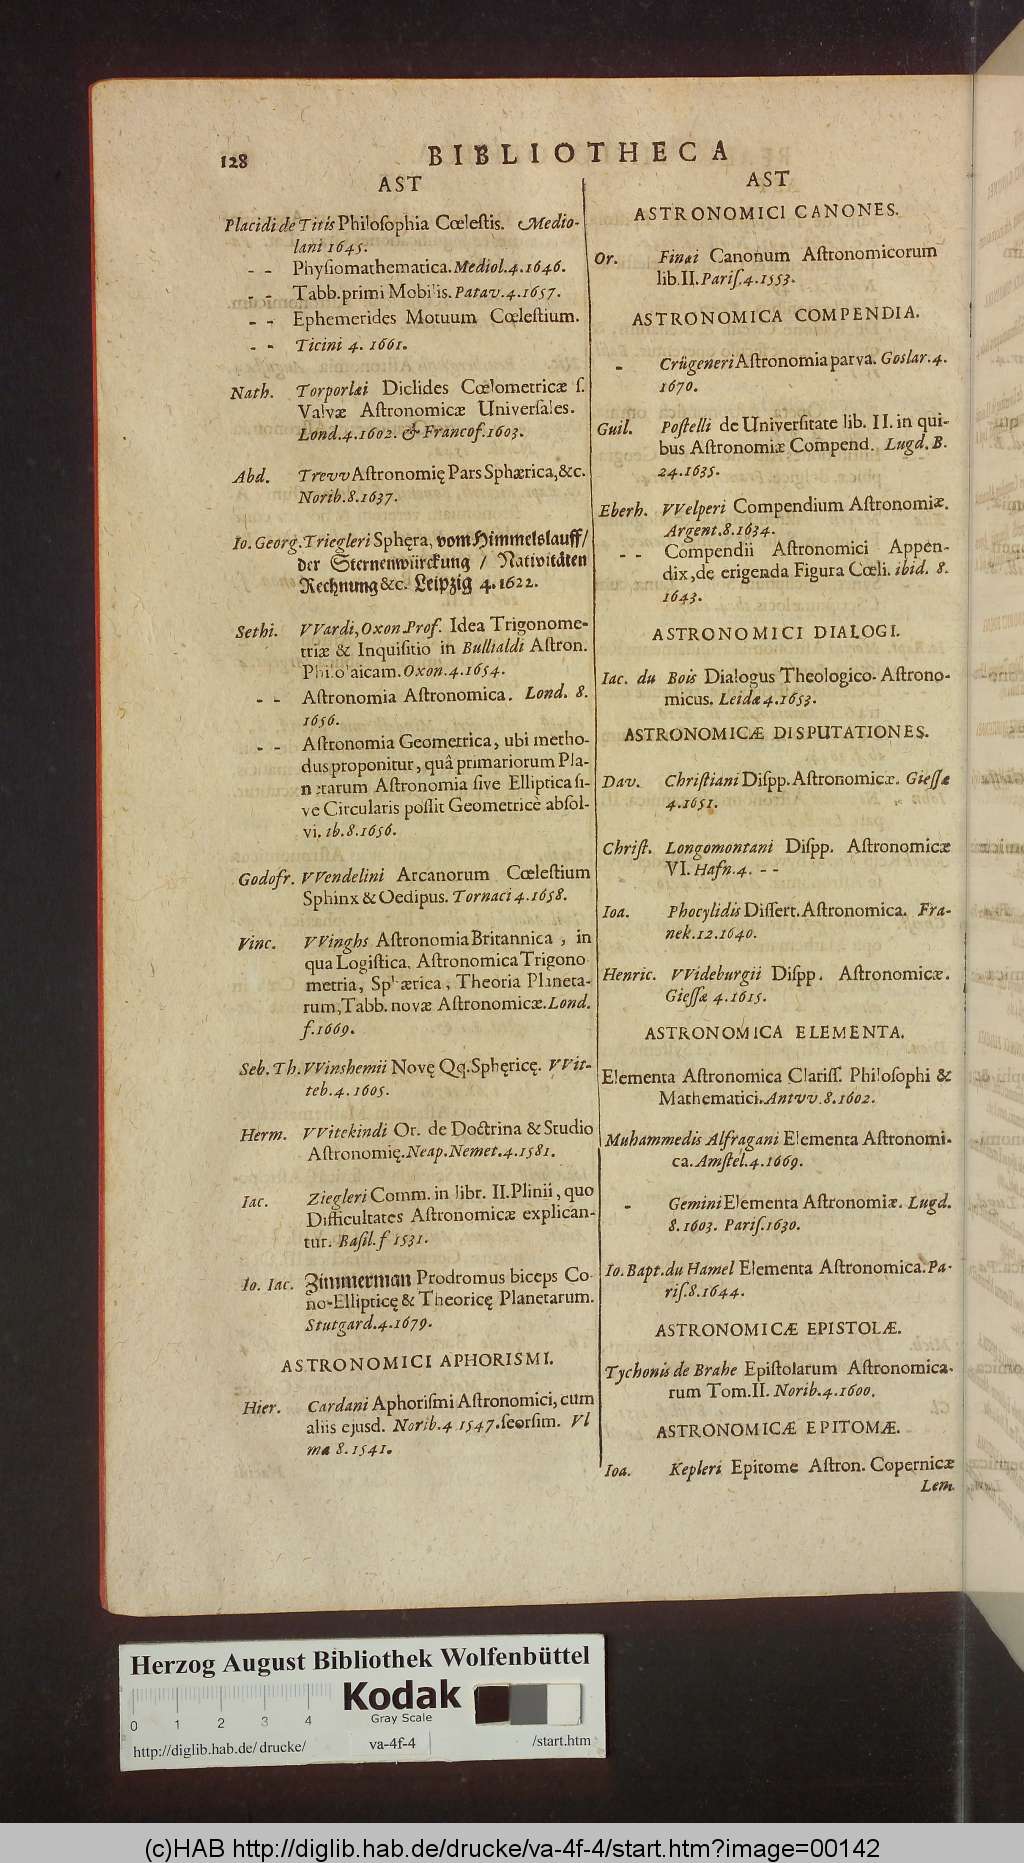 128
BIBLIOTHECA
AST
Placidi de Titis Philoſophia Cœleſtis. Medio-
lani 1645.
- - Phyſiomathematica. Mediol. 4. 1646.
- - Tabb. primi Mobilis. Patav. 4. 1657.
- - Ephemerides Motuum Cœleſtium.
- - Ticini 4. 1661.
Nath. Torporlæi Diclides Cœlometricæ ſ.
Valvæ Aſtronomicæ Univerſales.
Lond. 4. 1602. & Francof. 1603.
Abd. Trevv Aſtronomię Pars Sphærica, &c.
Norib. 8. 1637.
Io. Georg. Triegleri Sphęra, vom Himmelslauff/
der Sternenwürckung / Nativitäten
Rechnung &c. Leipzig 4. 1622.
Sethi. VVardi, Oxon. Prof. Idea Trigonome-
triæ & Inquiſitio in Bullialdi Aſtron.
Philolaicam. Oxon. 4. 1654.
- - Aſtronomia Aſtronomica. Lond. 8.
1656.
- - Aſtronomia Geometrica, ubi metho-
dus proponitur, quâ primariorum Pla-
netarum Aſtronomia ſive Elliptica ſi-
ve Circularis poſſit Geometricè abſol-
vi. ib. 8. 1656.
Godofr. VVendelini Arcanorum Cœleſtium
Sphinx & Oedipus. Tornaci 4. 1658.
Vinc. VVinghs Aſtronomia Britannica, in
qua Logiſtica, Aſtronomica Trigono
metria, Sphærica, Theoria Planeta-
rum, Tabb. novæ Aſtronomicæ. Lond.
f. 1669.
Seb. Th. VVinshemii Novę Qq. Sphęricę. VVit-
teb. 4. 1605.
Herm. VVitekindi Or. de Doctrina & Studio
Aſtronomię. Neap. Nemet. 4. 1581.
Iac. Ziegleri Comm. in libr. II. Plinii, quo
Difficultates Aſtronomicæ explican-
tur. Baſil. f 1531.
Io. Iac. Zimmerman Prodromus biceps Co-
no-Ellipticę & Theoricę Planetarum.
Stutgard. 4. 1679.
ASTRONOMICI APHORISMI.
Hier. Cardani Aphoriſmi Aſtronomici, cum
aliis ejusd. Norib. 4 1547. ſeorſim. Vl
ma 8. 1541.
AST
ASTRONOMICI CANONES.
Or. Finæi Canonum Aſtronomicorum
lib. II. Pariſ. 4. 1553.
ASTRONOMICA COMPENDIA.
- Crügeneri Aſtronomia parva. Goslar. 4.
1670.
Guil. Poſtelli de Univerſitate lib. II. in qui-
bus Aſtronomiæ Compend. Lugd. B.
24. 1635.
Eberh. VVelperi Compendium Aſtronomiæ.
Argent. 8. 1634.
- - Compendii Aſtronomici Appen-
dix, de erigenda Figura Cœli. ibid. 8.
1643.
ASTRONOMICI DIALOGI.
Iac. du Bois Dialogus Theologico-Aſtrono-
micus. Leidæ 4. 1653.
ASTRONOMICÆ DISPUTATIONES.
Dav. Chriſtiani Diſpp. Aſtronomicæ. Gieſſæ
4. 1651.
Chriſt. Longomontani Diſpp. Aſtronomicæ
VI. Hafn. 4. - -
Ioa. Phocylidis Diſſert. Aſtronomica. Fra-
nek. 12. 1640.
Henric. VVideburgii Diſpp. Aſtronomicæ.
Gieſſæ 4. 1615.
ASTRONOMICA ELEMENTA.
Elementa Aſtronomica Clariſſ. Philoſophi &
Mathematici. Antvv. 8. 1602.
Muhammedis Alfragani Elementa Aſtronomi-
ca. Amſtel. 4. 1669.
- Gemini Elementa Aſtronomiæ. Lugd.
8. 1603. Pariſ. 1630.
Io. Bapt. du Hamel Elementa Aſtronomica. Pa-
riſ. 8. 1644.
ASTRONOMICÆ EPISTOLÆ.
Tychonis de Brahe Epiſtolarum Aſtronomica-
rum Tom. II. Norib. 4. 1600.
ASTRONOMICÆ EPITOMÆ.
Ioa. Kepleri Epitome Aſtron. Copernicæ
Lem.
Herzog August Bibliothek Wolfenbüttel
Kodak
Gray Scale
0 1 2 3 4
http://diglib.hab.de/drucke/ va-4f-4 /start.htm
(c)HAB http://diglib.hab.de/drucke/va-4f-4/start.htm?image=00142